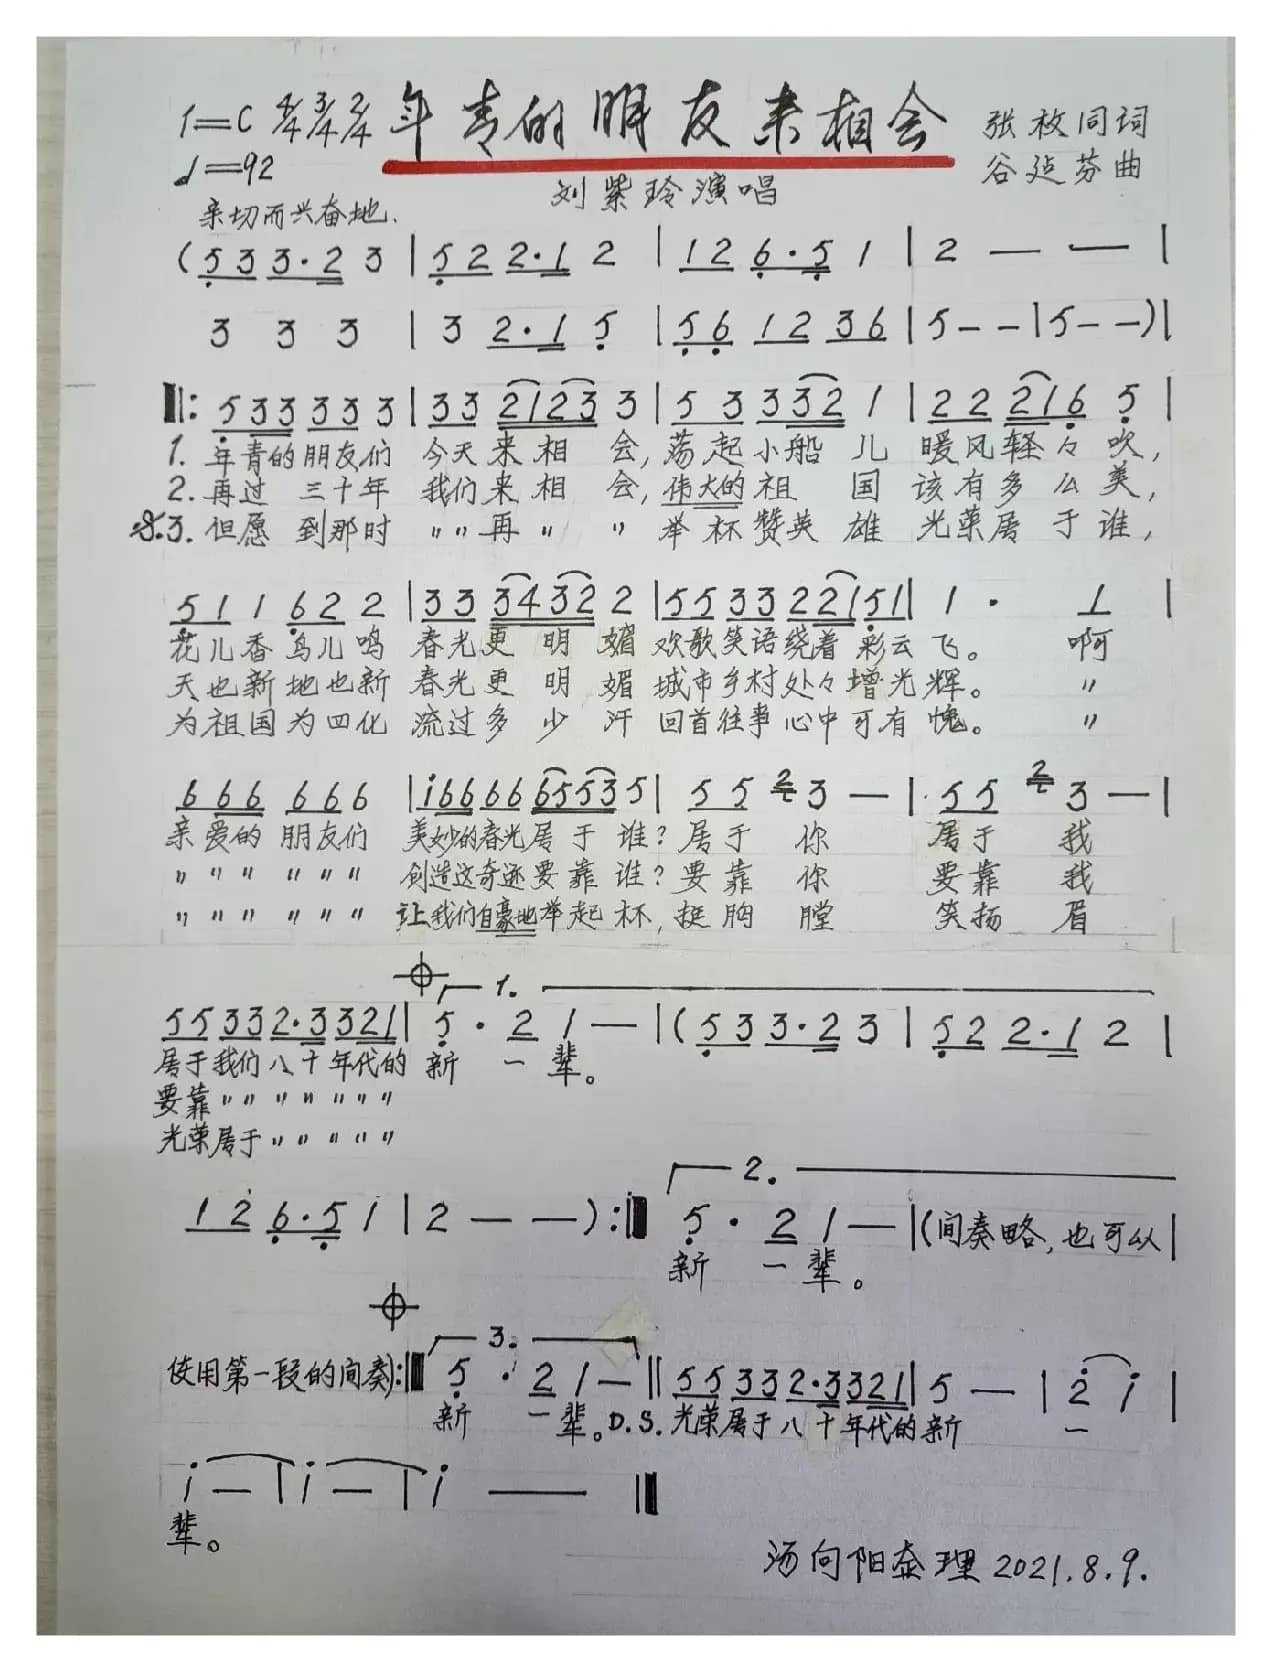 1=C 4/4 3/4 2/4 年青的朋友来相会 张枚同词
♩=92 谷建芬曲
刘紫玲演唱
亲切而兴奋地.
(5 3 3 3·2 3 | 5 2 2·1 2 | 1 2 6·5 1 | 2 — — |
3 3 3 | 3 2·1 5 | 5 6 1 2 3 6 | 5 - - | 5 - - ) |
‖: 5 3 3 3 3 3 | 3 3 2 1 2 3 3 | 5 3 3 3 2 1 | 2 2 2 1 6 5 |
1. 年青的朋友们 今天来相会, 荡起小船儿 暖风轻々吹,
2. 再过三十年 我们来相会, 伟大的祖国 该有多么美,
𝄋3. 但愿到那时 〃〃再〃〃 举杯赞英雄 光荣属于谁,
5 1 1 6 2 2 | 3 3 3 4 3 2 2 | 5 5 3 3 2 2 1 5 1 | 1 · 1 |
花儿香鸟儿鸣 春光更明媚 欢歌笑语绕着彩云飞。 啊
天也新地也新 春光更明媚 城市乡村处々增光辉。 〃
为祖国为四化 流过多少汗 回首往事心中可有愧。 〃
6 6 6 6 6 6 | i 6 6 6 6 6 5 5 3 5 | 5 5 2 3 — | 5 5 2 3 — |
亲爱的朋友们 美妙的春光属于谁? 属于你 属于我
〃〃〃〃〃〃 创造这奇迹要靠谁? 要靠你 要靠我
〃〃〃〃〃〃 让我们自豪地举起杯, 挺胸膛 笑扬眉
1.
5 5 3 3 2·3 3 2 1 | 5 · 2 1 — | (5 3 3 3·2 3 | 5 2 2·1 2 |
属于我们八十年代的 新一辈。
要靠〃〃〃〃〃〃〃
光荣属于〃〃〃〃〃
2.
1 2 6·5 1 | 2 — — ) :‖ 5 · 2 1 — | (间奏略, 也可以 |
新一辈。
3.
使用第一段的间奏) :‖ 5 · 2 1 — ‖ 5 5 3 3 2·3 3 2 1 | 5 — | 2 i |
新一辈。D.S. 光荣属于八十年代的新 一
i — | i — | i — ‖
辈。
汤向阳整理 2021.8.9.